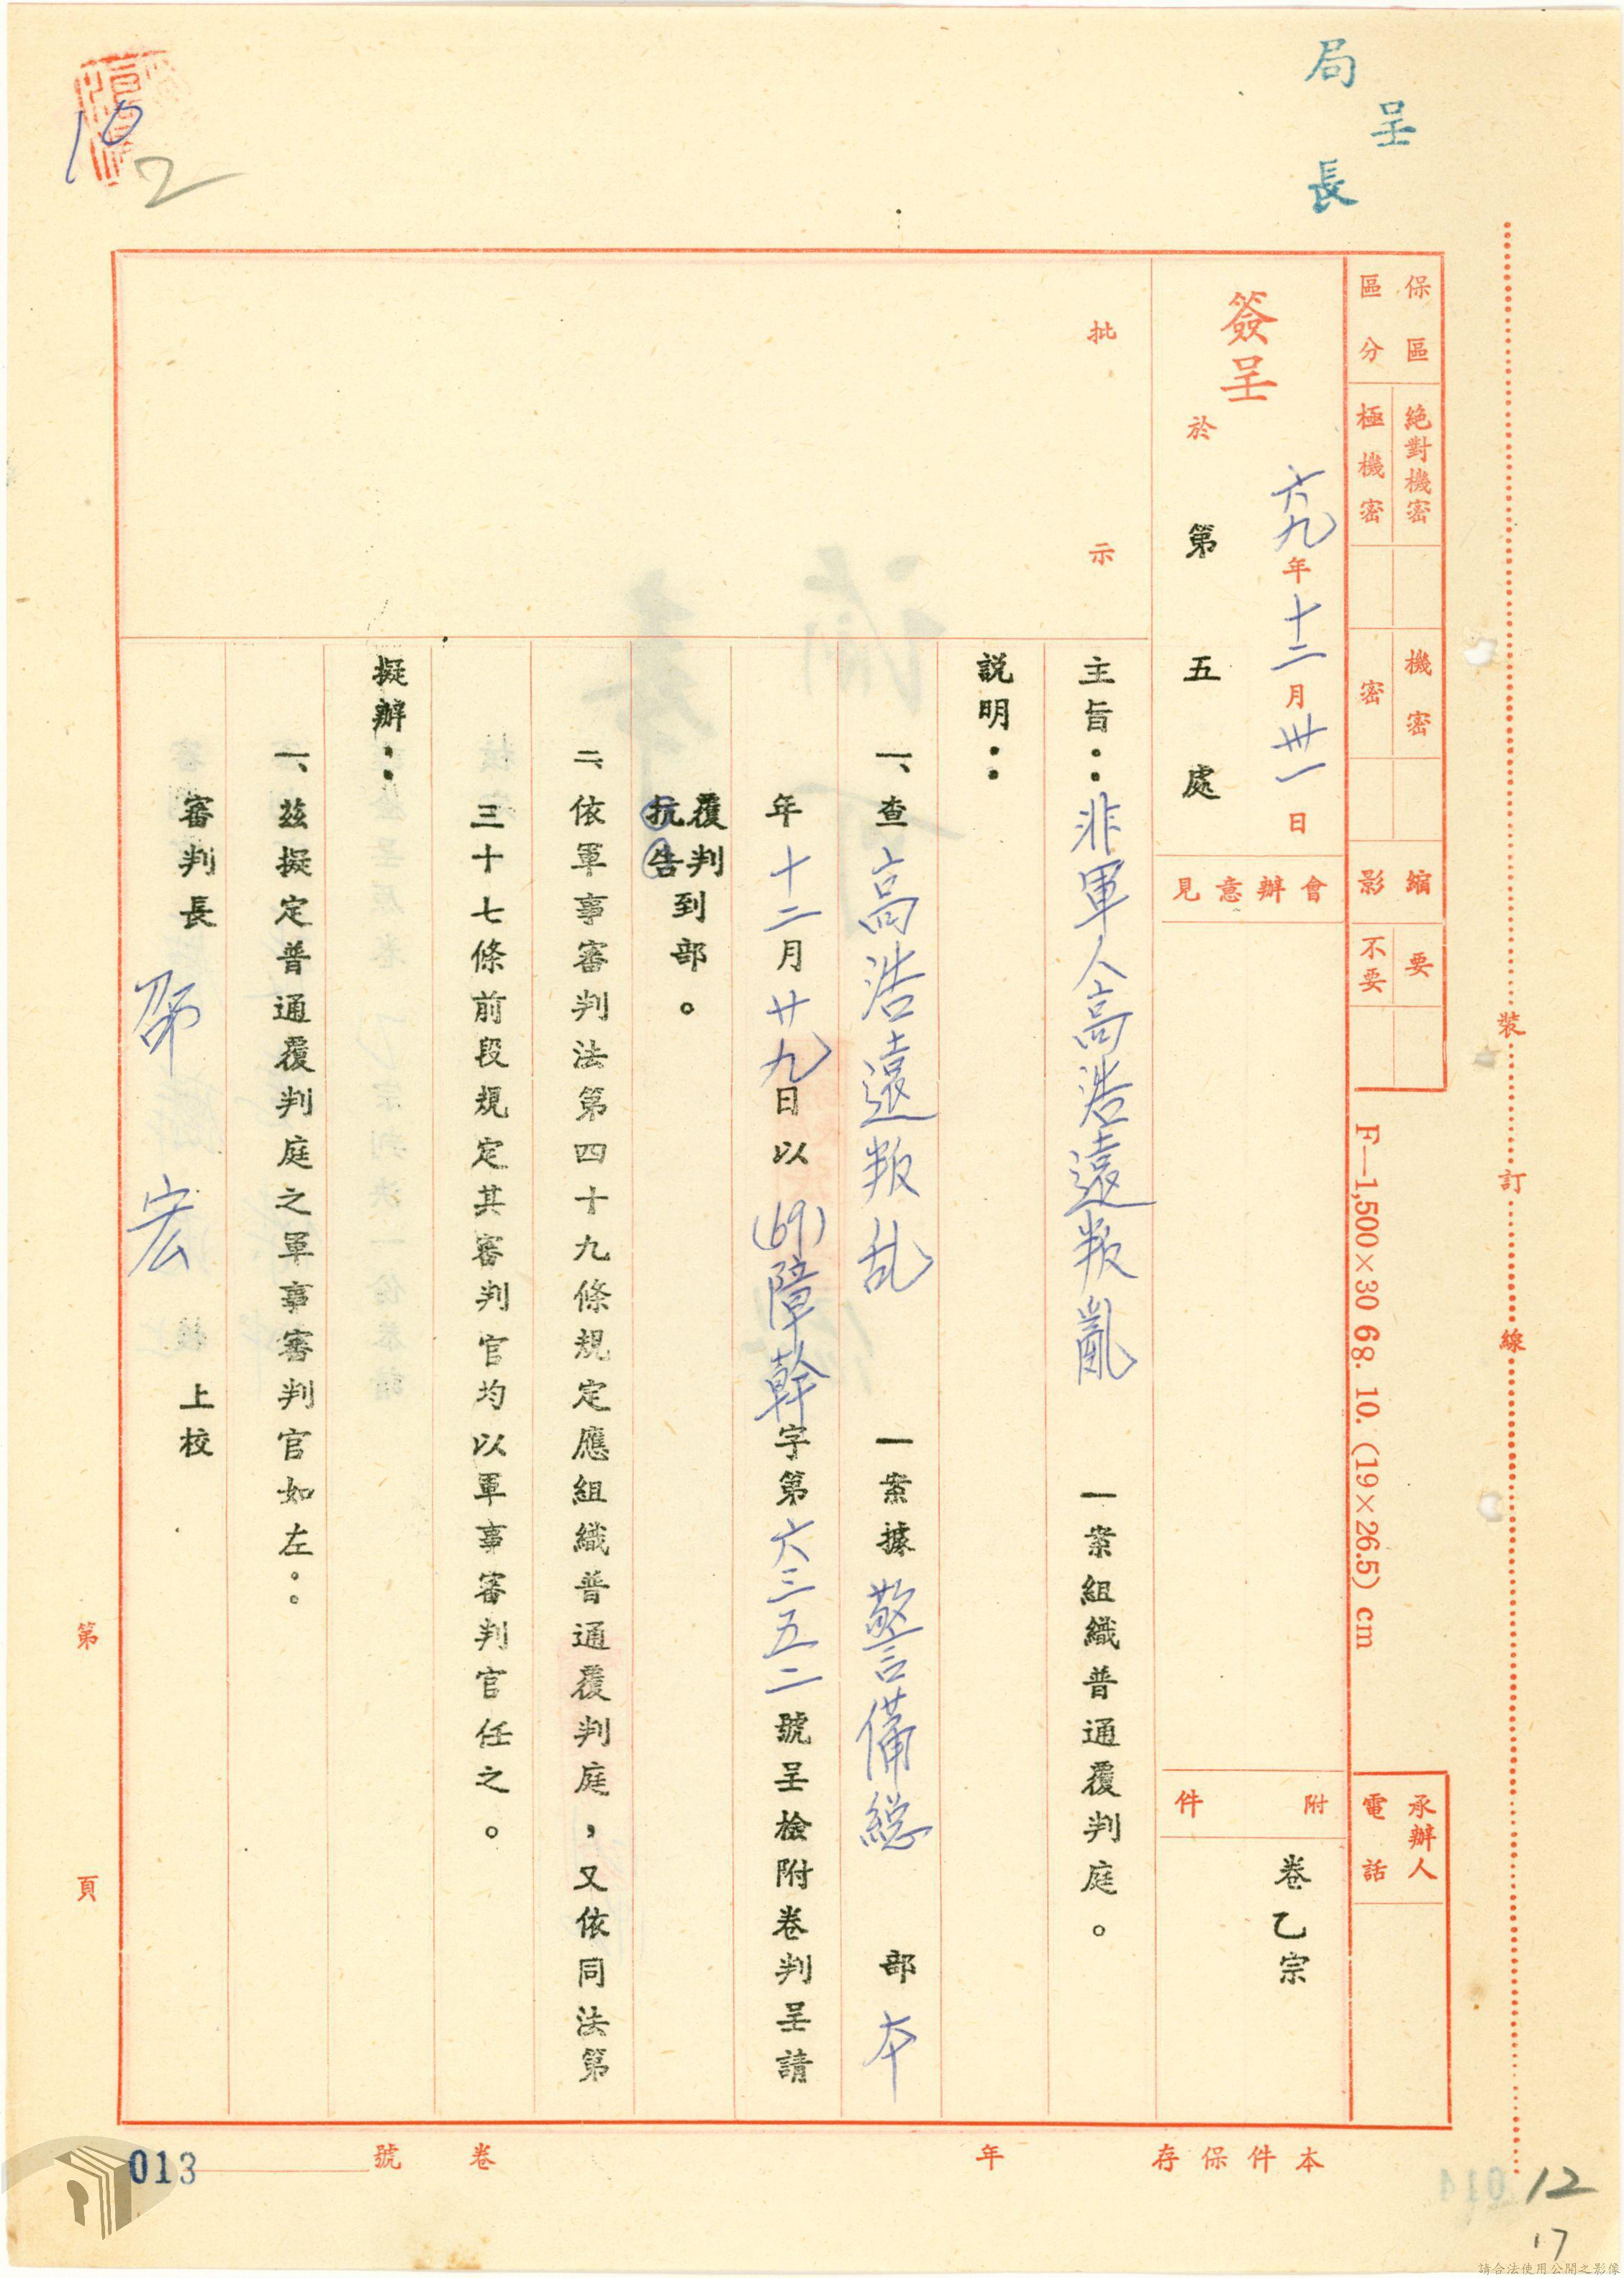 呈
局長
保區區分
絕對機密
極機密
機密
密
縮影
要
不要
承辦人
電話
簽呈
六九年十二月卅一日
於第五處
會辦意見
附件
卷乙宗
批示
主旨：非軍人高浩遠叛亂一案組織普通覆判庭。
説明：
一、查高浩遠叛乱一案據警備総部本
年十二月廿九日以(69)障幹字第六三五二號呈檢附卷判呈請
覆判
抗告
到部。
二、依軍事審判法第四十九條規定應組織普通覆判庭，又依同法第
三十七條前段規定其審判官均以軍事審判官任之。
擬辦：
一、茲擬定普通覆判庭之軍事審判官如左：
審判長 邵宏 上校
第 頁
本件保存 年
卷 號
013
裝 訂 線
F—1,500×30 68. 10. (19×26.5) cm
10
2
12
17
014
請合法使用公開之影像